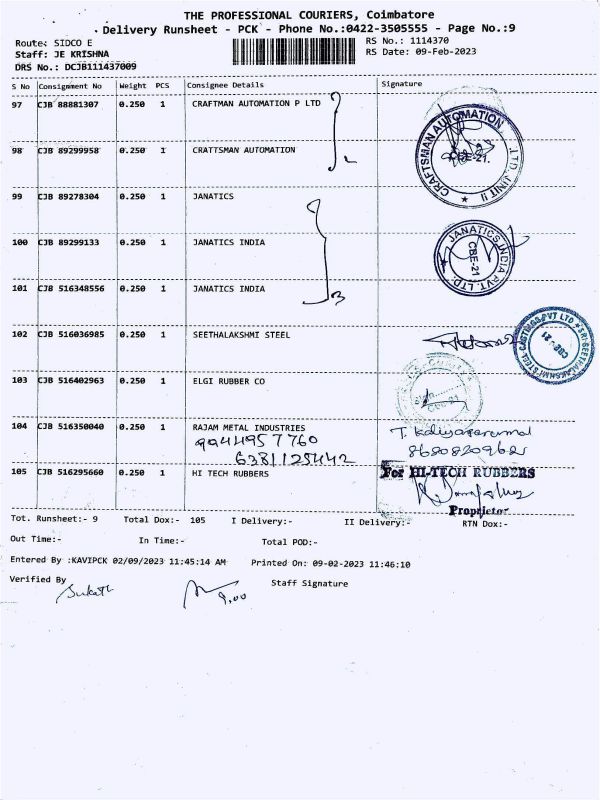 THE PROFESSIONAL COURIERS, Coimbatore
Delivery Runsheet - PCK - Phone No.:0422-3505555 - Page No.:9
Route: SIDCO E
RS No.: 1114370
Staff: JE KRISHNA
RS Date: 09-Feb-2023
DRS No.: DCJB111437009
S No Consignment No Weight PCS Consignee Details Signature
97 CJB 88881307 0.250 1 CRAFTMAN AUTOMATION P LTD
CRAFTSMAN AUTOMATION LTD., UNIT II
CBE-21.
98 CJB 89299958 0.250 1 CRAFTSMAN AUTOMATION
99 CJB 89278304 0.250 1 JANATICS
100 CJB 89299133 0.250 1 JANATICS INDIA
JANATICS INDIA PVT. LTD.
CBE-21
101 CJB 516348556 1 JANATICS INDIA
3
102 CJB 516036985 0.250 1 SEETHALAKSHMI STEEL
SRI SEETHALAKSHMI STEEL CASTINGS PVT LTD
CBE - 21
103 CJB 516402963 0.250 1 ELGI RUBBER CO
104 CJB 516350040 0.250 1 RAJAM METAL INDUSTRIES
9944957760
6381125442
8680820962
105 CJB 516295660 0.250 1 HI TECH RUBBERS
For HI-TECH RUBBERS
Proprietor
Tot. Runsheet:- 9 Total Dox:- 105 I Delivery:- II Delivery:- RTN Dox:-
Out Time:- In Time:- Total POD:-
Entered By :KAVIPCK 02/09/2023 11:45:14 AM Printed On: 09-02-2023 11:46:10
Verified By Staff Signature
9.00